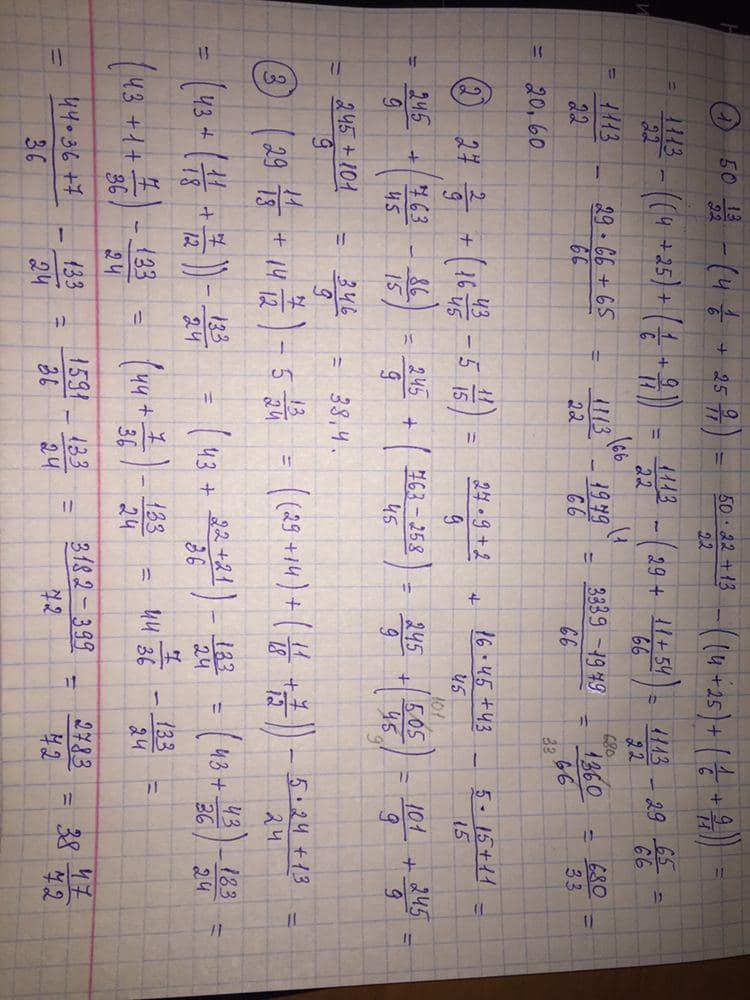 ① 50 13/22 − (4 1/6 + 25 9/11) = (50·22+13)/22 − ((4+25) + (1/6 + 9/11)) =
= 1113/22 − ((4+25) + (1/6 + 9/11)) = 1113/22 − (29 + (11+54)/66) = 1113/22 − 29 65/66 =
= 1113/22 − (29·66+65)/66 = 1113/22 (66 − 1979/66 (1 = (3339−1979)/66 = 1360/66 680 33 = 680/33 =
= 20,60
② 27 2/9 + (16 43/45 − 5 11/15) = (27·9+2)/9 + (16·45+43)/45 − (5·15+11)/15 =
= 245/9 + (763/45 − 86/15) = 245/9 + ((763−258)/45) = 245/9 + (505/45) 101 9 = 101/9 + 245/9 =
= (245+101)/9 = 346/9 = 38,4.
③ (29 11/18 + 14 7/12) − 5 13/24 = ((29+14) + (11/18 + 7/12)) − (5·24+13)/24 =
= (43 + (11/18 + 7/12)) − 133/24 = (43 + (22+21)/36) − 133/24 = (43 + 43/36) − 133/24 =
(43 + 1 + 7/36) − 133/24 = (44 + 7/36) − 133/24 = 44 7/36 − 133/24 =
= (44·36+7)/36 − 133/24 = 1591/36 − 133/24 = (3182−399)/72 = 2783/72 = 38 47/72